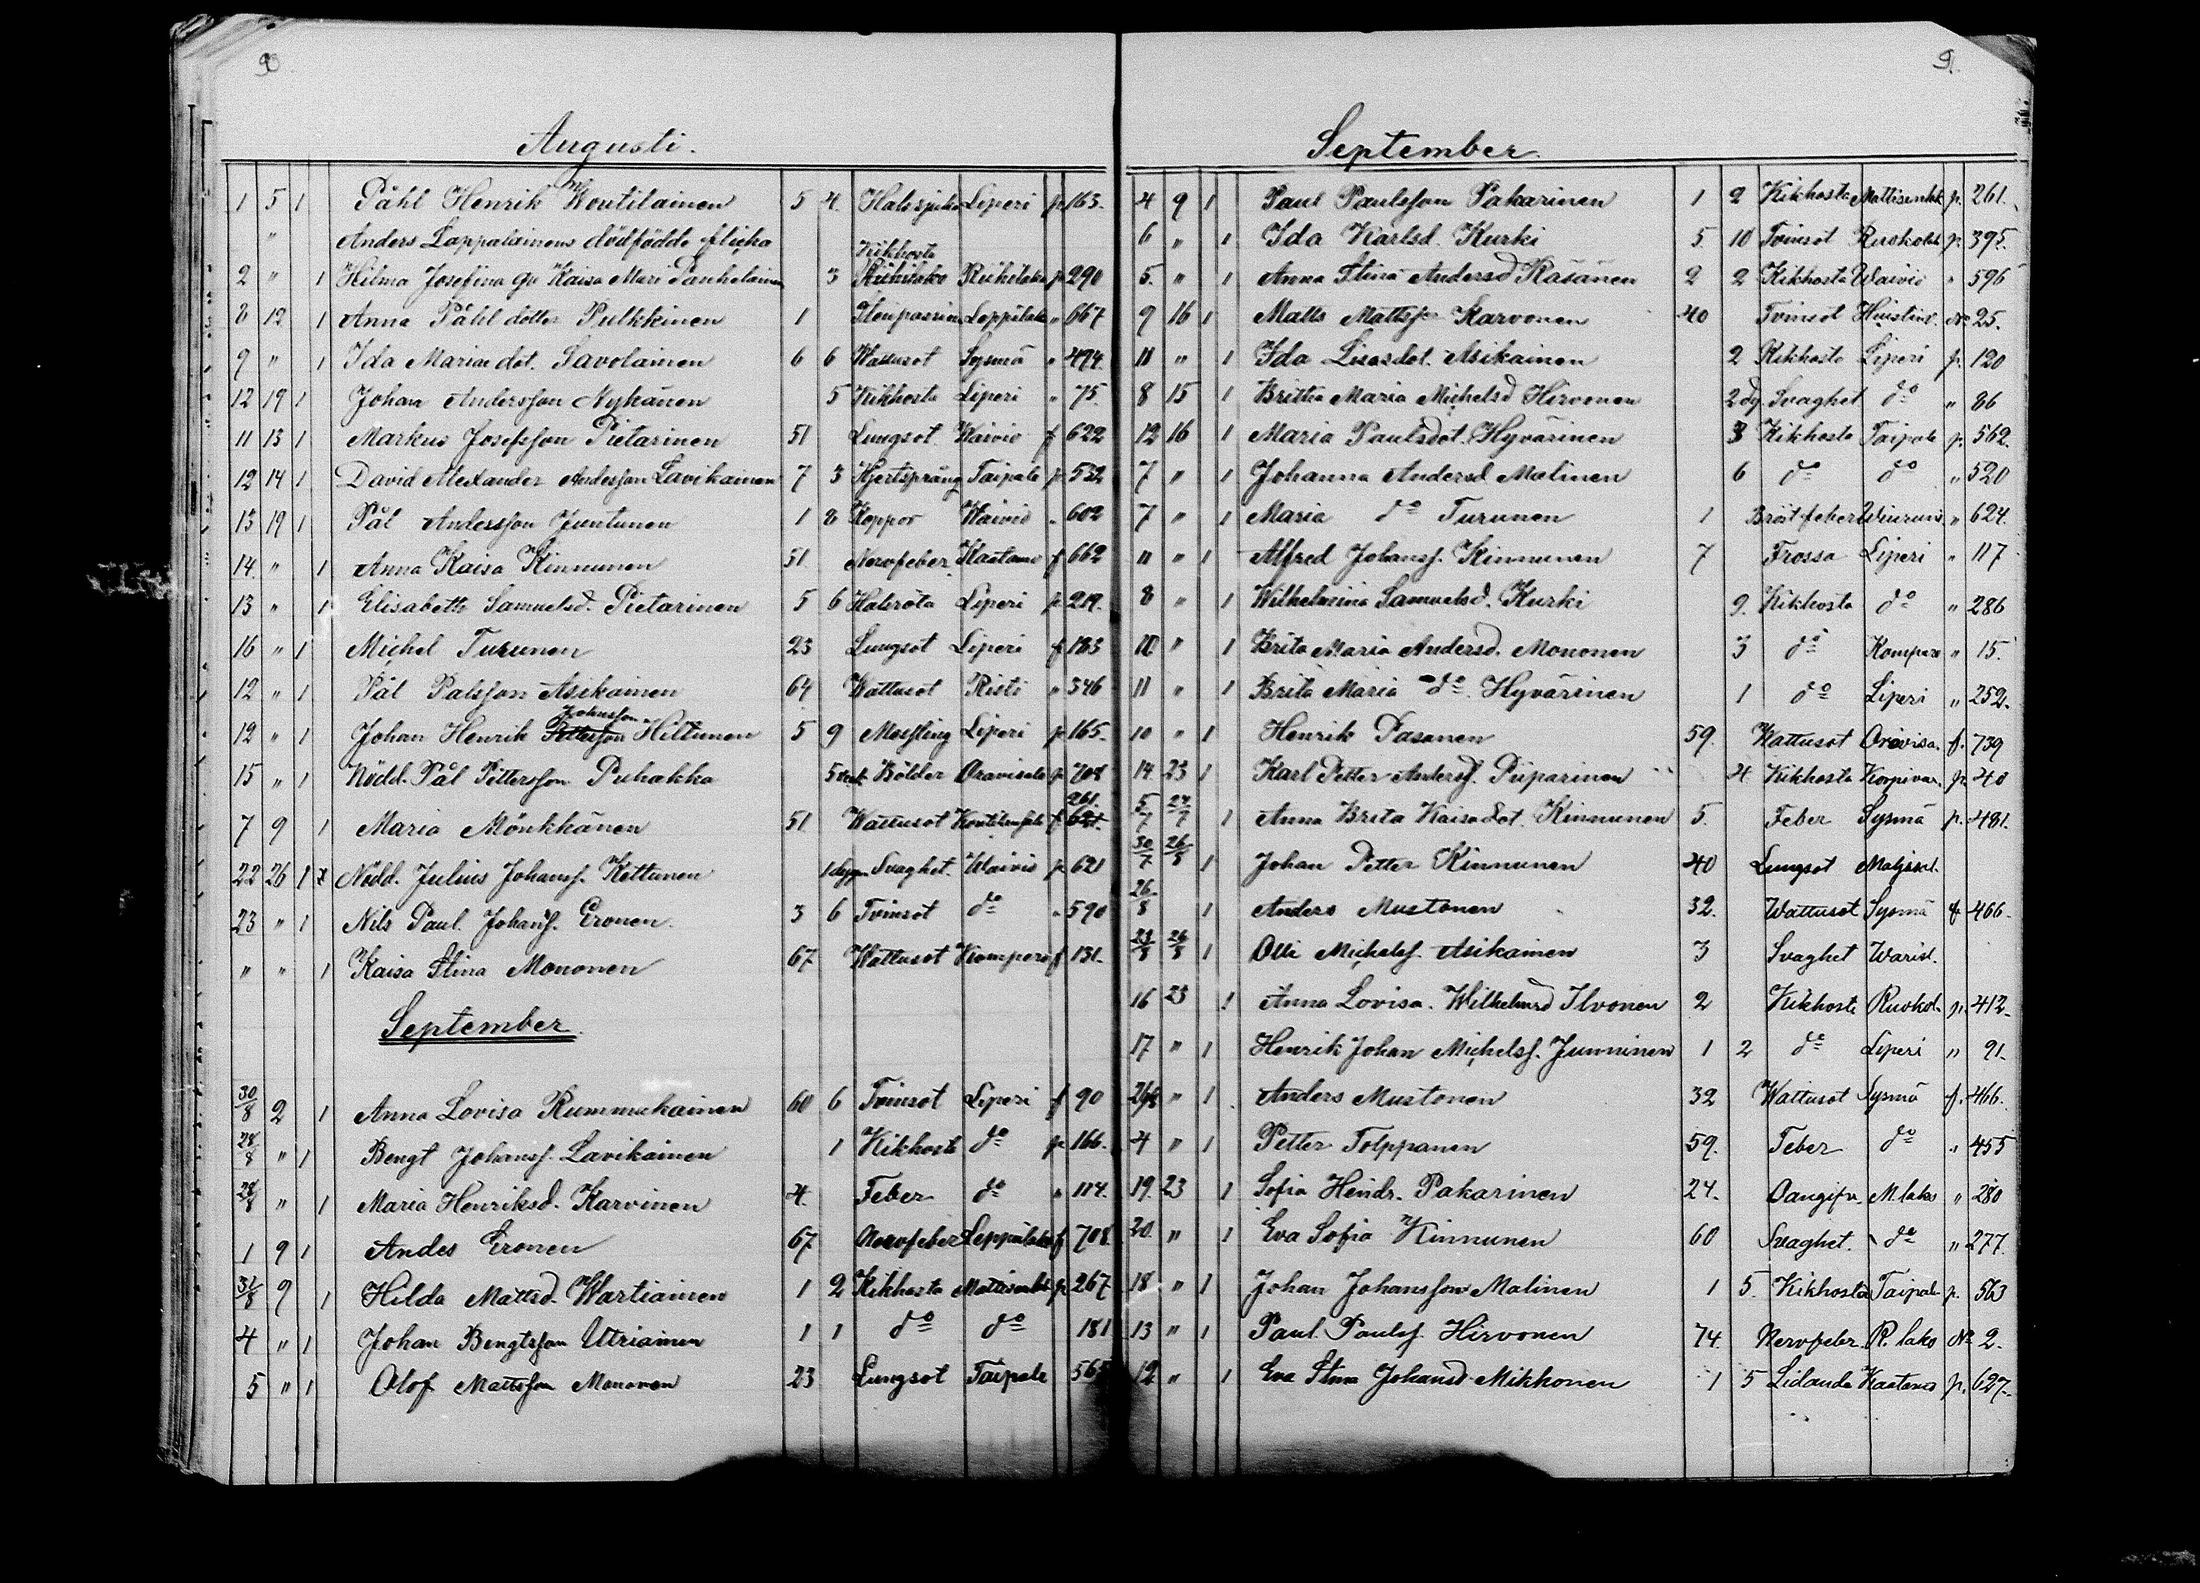 90
Augusti.
1 5 1 Påhl Henrik Woutilainen 5 4. Halssjuka Liperi p. 163.
" Anders Lappalainens dödfödde flicka
Kikhosta
2 " 1 Hilma Josefina Kaisa Mari Tanhelainen 3 p 290
8 12 1 Anna Påhl dotter Pulkkinen 1 Leppilaks " 667
9 " 1 Ida Marias dot. Savolainen 6 6 Wattusot Sysmä " 494.
12 19 1 Johan Andersson Nykänen 5 Kikhosta Liperi " 75.
11 13 1 Markus Josefsson Pietarinen 51 Lungsot Waivio f 622
12 14 1 David Alexander Andersson Lavikainen 7 3 Hjertsprång Taipale p. 532
13 19 1 Pål Andersson Juntunen 1 8 Koppor Waivio " 602
14. " 1 Anna Kaisa Kinnunen 51 Nervfeber Kaatamo f 662
13 " 1 Elisabeth Samuelsd. Pietarinen 5 6 Halsröta Liperi p. 219.
16 " 1 Michel Turunen 23 Lungsot Liperi f 183
12 " 1 Pål Palsson Asikainen 64 Wattusot Risti " 346
12 " 1 Johan Henrik Johansson Hiltunen 5 9 Messling Liperi p 165.
15 " 1 Nödd. Pål Pettersson Puhakka 5 veck Bölder Oravisalo p. 708
261.
7 9 1 Maria Mönkkänen 51 Wattusot f 621.
22 26 1 Nödd. Julius Johansf. Kettunen 1 dygn Svaghet. Waivio p 621
23 " 1 Nils Paul Johansf. Eronen. 3 6 Tvinsot do " 590
" " 1 Kaisa Stina Mononen 67 Wattusot Kompero f 131.
September.
30/8 2 1 Anna Lovisa Rummukainen 60 6 Tvinsot Liperi f 90
28/8 " 1 Bengt Johansf. Lavikainen 1 Kikhosta do p. 166.
28/8 " 1 Maria Henriksd. Karvinen 4. Feber do " 114.
1 9 1 Andes Eronen 67 Nervfeber Leppilaks f 708.
31/8 9 1 Hilda Mattsd. Wartiainen 1 2 Kikhosta p 267
4 " 1 Johan Bengtsson Utriainen 1 1 do do 181
5 " 1 Olof Mattsson Mononen 23 Lungsot Taipale
9.
September.
4 9 1 Paul Paulsson Pakarinen 1 2 Kikhosta p. 261.
6 " 1 Ida Karlsd. Kurki 5 10 Tvinsot p. 395.
5. " 1 Anna Stina Andersd Kasanen 2 2 Kikhosta Waivio " 596
9 16 1 Matts Mattsson Karvonen 40 Tvinsot No 25.
11 " 1 Ida Lisasdot. Asikainen 2 Kikhosta Liperi p. 120
8 15 1 Britha Maria Michelsd Hirvonen 2 dg. Svaghet do " 86
12 16 1 Maria Paulsdot. Hyvärinen 3 Kikhosta Taipale p. 562.
7 " 1 Johanna Andersd Malinen 6 do do " 520
7 " 1 Maria do Turunen 1 Bröstfeber " 624.
11 " 1 Alfred Johansf. Kinnunen 7 Frossa Liperi " 117
8 " 1 Wilhelmina Samuelsd. Kurki 9. Kikhosta do " 286
10 " 1 Brita Maria Andersd. Mononen 3 do Kompero " 15.
11 " 1 Brita Maria do Hyvärinen 1 do Liperi " 252.
10 " 1 Henrik Pasanen 59. Wattusot Oravisa. f. 739
14 23 1 Karl Petter Andersf. Piiparinen 4 Kikhosta Korpivar. p. 40
5/7 27/7 1 Anna Brita Kaisadot. Kinnunen 5. Feber Sysmä p. 481.
30/7 26/8 1 Johan Petter Kinnunen 40 Lungsot
26/8 1 Anders Mustonen 32. Wattusot Sysmä f 466.
23/8 26/8 1 Olli Michelsf. Asikainen 3 Svaghet
16 23 1 Anna Lovisa Wilhelmsd Ilvonen 2 Kikhosta p. 412.
17 " 1 Henrik Johan Michelsf. Junninen 1 2 do Liperi " 91.
" 1 Anders Mustonen 32 Wattusot Sysmä f. 466.
4 " 1 Petter Tolppanen 59. Feber do " 455
19. 23 1 Sofia Hendr. Pakarinen 24. Oangifv. M. laks " 280
20. " 1 Eva Sofia Kinnunen 60 Svaghet. do " 277.
18 " 1 Johan Johansson Malinen 1 5. Kikhosta Taipale p. 563
13 " 1 Paul Paulsf. Hirvonen 74. Nervfeber. R. laks No 2.
12 " 1 Eva Stina Johansd. Mikkonen 1 5 Kaatamo p. 627.